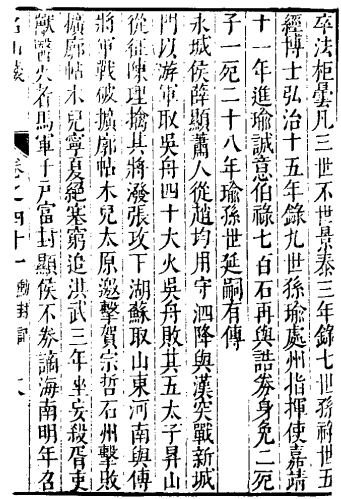 卒法柜曇凡三世不世景泰三年錄七世孫祿世五
經博士弘治十五年錄九世孫瑜處州指揮使嘉靖
十一年進瑜誠意伯祿七百石再與誥券身免二死
子一死二十八年瑜孫世延嗣有傳
永城侯薛顯蕭人從趙均用守泗降與漢突戰新城
門以游軍取吳舟四十大火吳舟敗其五太子昇山
從征陳理擒其將潑張攻下湖蘇取山東河南與傅
將軍戰破擴廓帖木兒太原邀擊賀宗哲石州擊敗
擴廓帖木兒寧夏絕塞窮追洪武三年坐妄殺胥吏
獸醫火者馬軍千戶富封顯侯不券謫海南明年召
名山藏 卷之四十一 勳封記